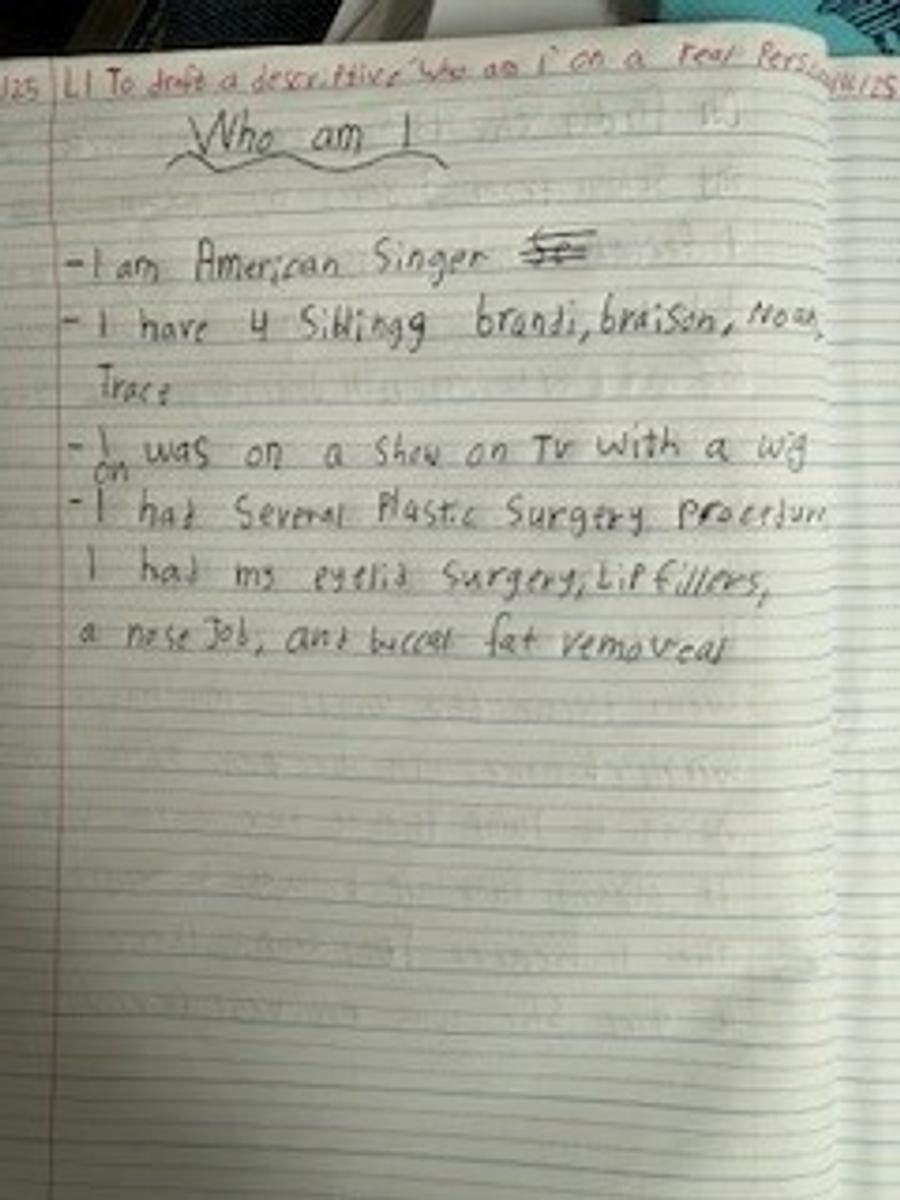 /25 LI To draft a descriptive 'who am i' on a real Person
Who am I
- I am American Singer
- I have 4 Siblings brandi, braison, Noah,
Trace
- I was on a show on TV with a wig
on
- I had Several Plastic Surgery Procedure
I had my eyelid surgery, Lip fillers,
a nose Job, and buccal fat removeal